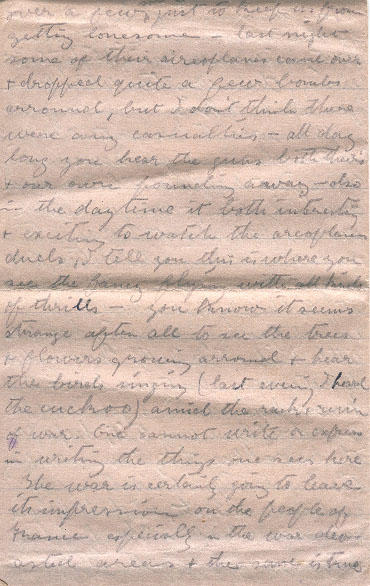 over a few, just to keep us from
getting lonesome - last night
some of their aireoplanes came over
+ dropped quite a few bombs
arround, but I don't think there
were any casualties - all day
long you hear the guns both theirs
+ our own pounding away - also
in the day time it both interesting
+ exciting to watch the areoplane
duels, I tell you this is where you
see the fancy flying with all kinds
of thrills - you know it seems
strange after all to see the trees
+ flowers growing arround + hear
the birds singing (last evening I heard
the cuckoo) amid the ruin
of war. One cannot write or express
in writing the things one sees here
The war is certainly going to leave
its impression on the people of
France especially in the war dev-
astated areas + the same is true